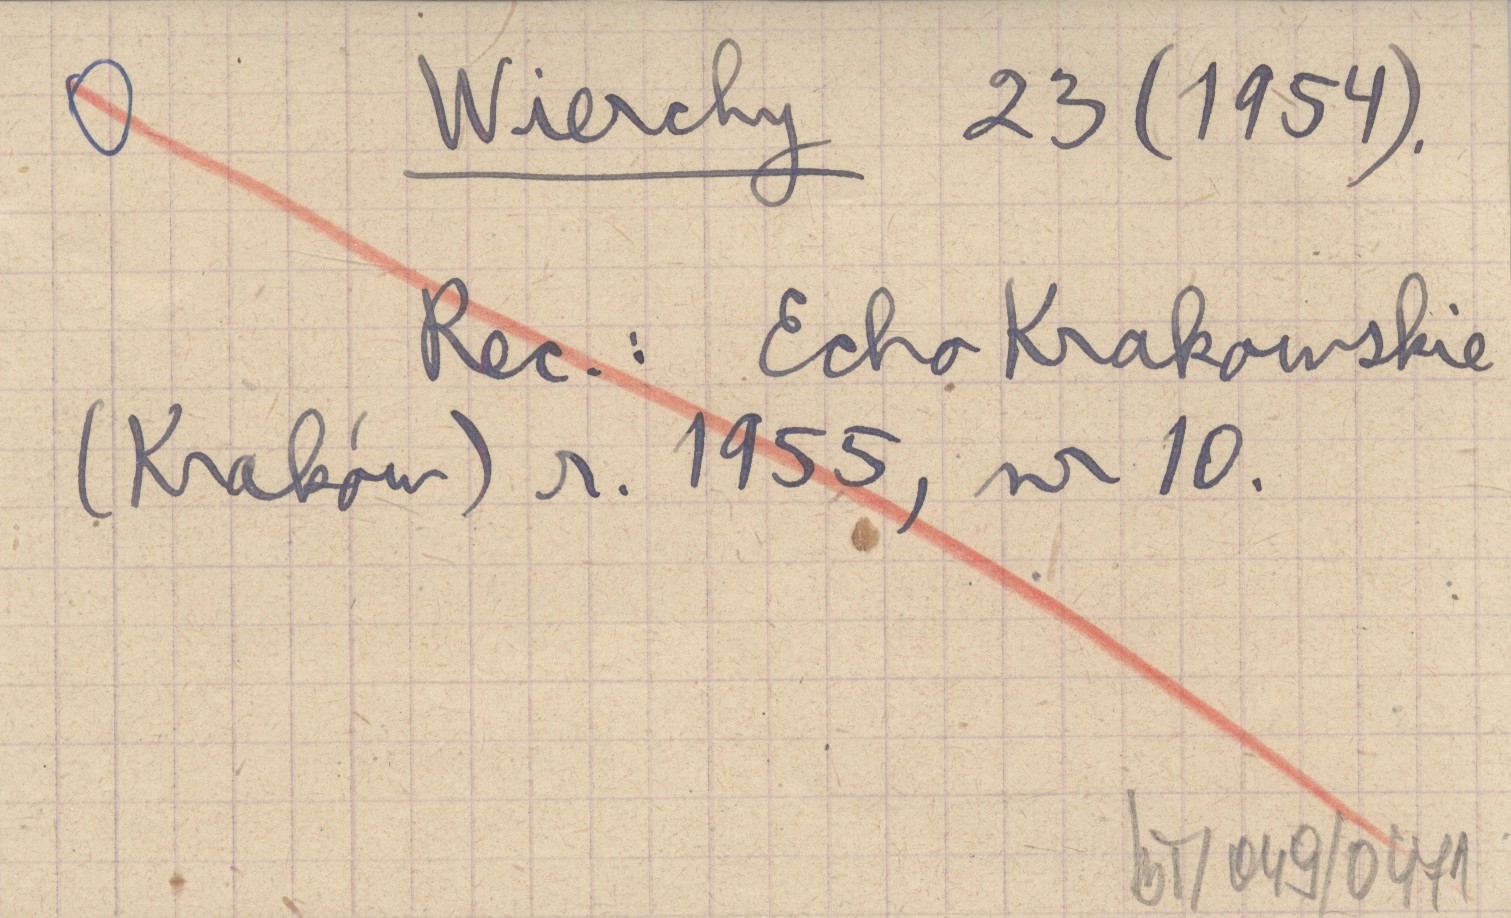 Wierchy 23 (1954).
Rec.: Echo Krakowskie
(Kraków) r. 1955, nr 10.
BT/049/0471